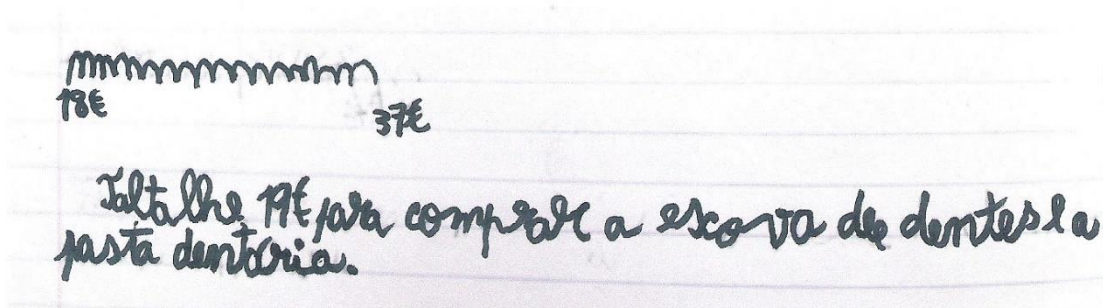 18€
37€
Falta lhe 19€ para comprar a escova de dentes e a
pasta dentária.